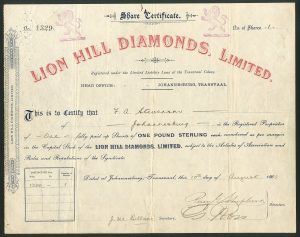 Share Certificate.
No. 1329. No. of Shares 1
LION HILL DIAMONDS, LIMITED.
Registered under the Limited Liability Laws of the Transvaal Colony.
HEAD OFFICE: JOHANNESBURG, TRANSVAAL.
This is to Certify that F. A. Stevenson
of Johannesburg is the Registered Proprietor
of One fully paid up Shares of ONE POUND STERLING each numbered as per margin
in the Capital Stock of the LION HILL DIAMONDS, LIMITED, subject to the Articles of Association and
Rules and Regulations of the Syndicate.
Dated at Johannesburg, Transvaal, this 10th day of August
Directors.
Secretary.